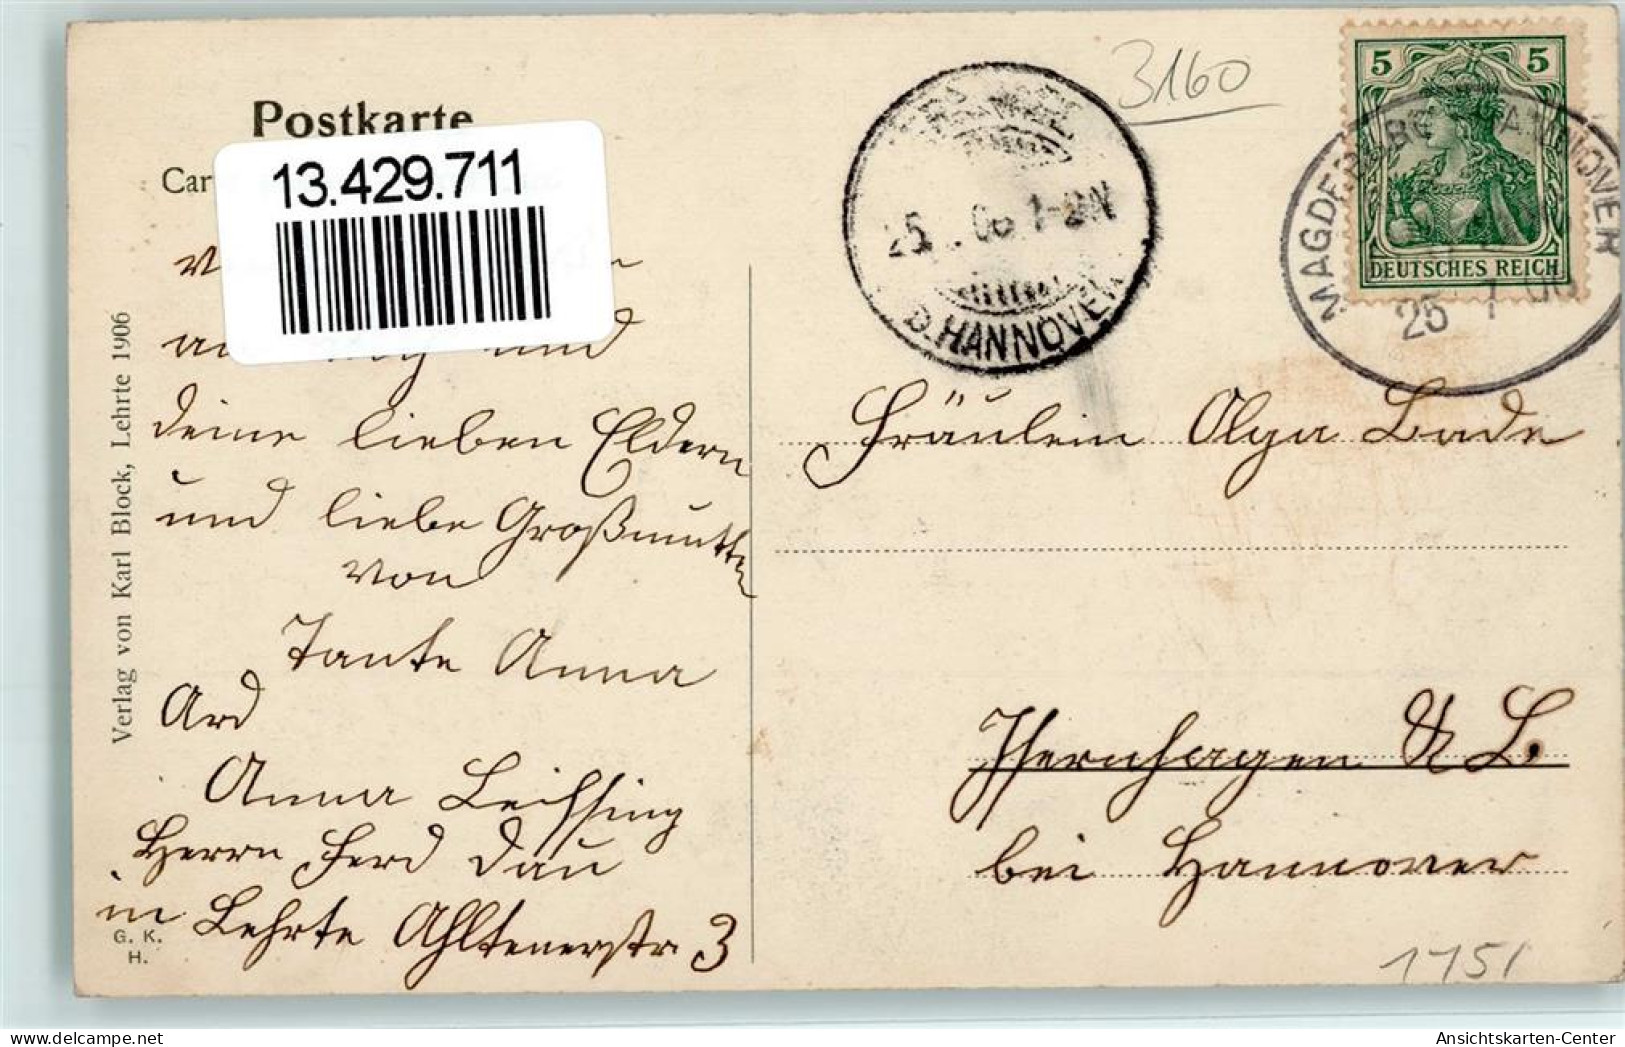 Postkarte
Car
13.429.711
an und
deine lieben Eldern
und liebe Großmutter
von
Tante Anna
Ard
Anna Leifsing
Herrn Ferd Dau
in Lehrte Ahltenerstr 3
Verlag von Karl Block, Lehrte 1906
G. K.
H.
3160
25 . 06 1-2N
B. HANNOVER
5 5
DEUTSCHES REICH
MAGDEBURG HANNOVER
25 7 06
Fräulein Olga Bade
Isernhagen N L.
bei Hannover
1151
Ansichtskarten-Center